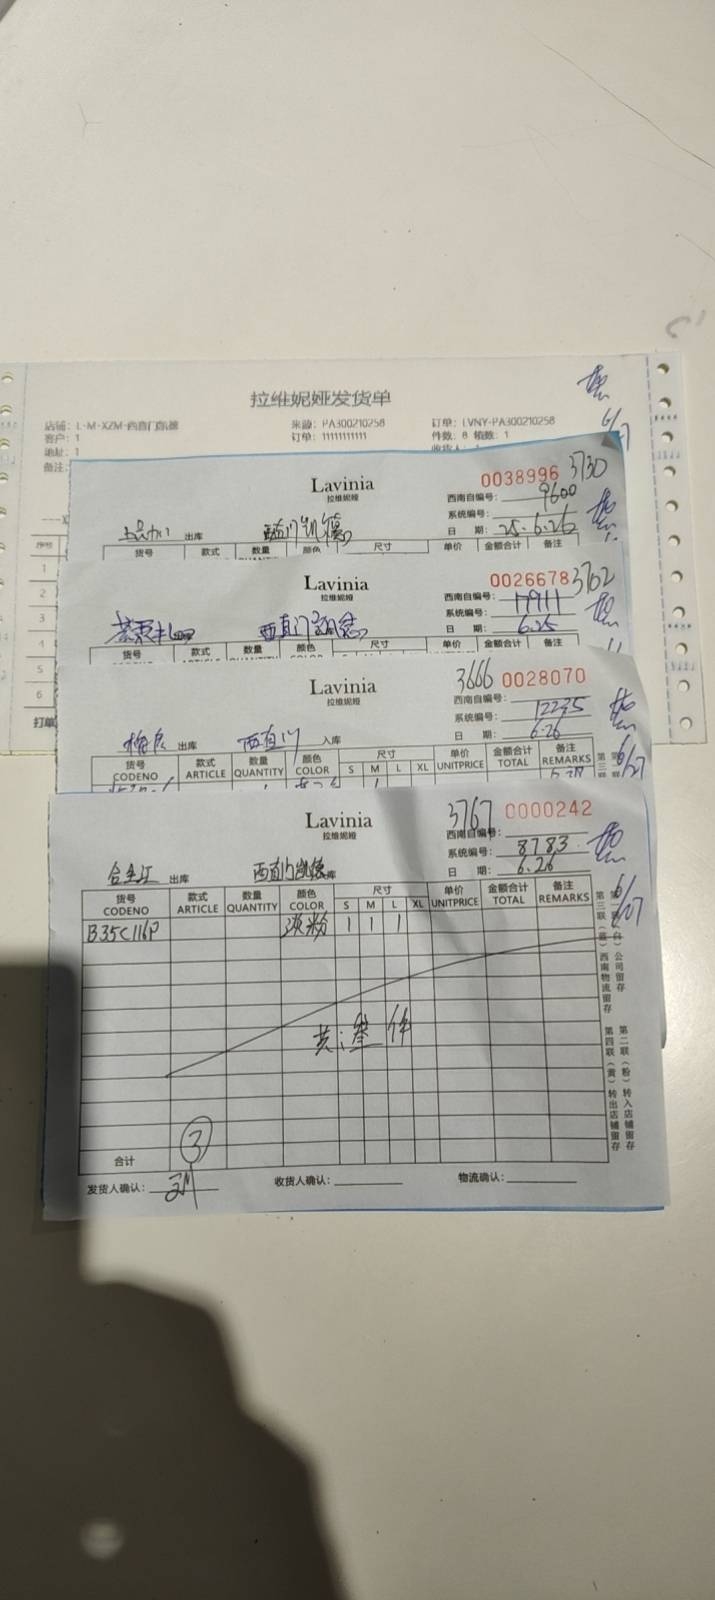 拉维妮娅发货单
店铺: L-M-XZM-西直门凯德 来源: PA300210258 订单: LVNY-PA300210258
客户: 1 订单: 11111111111 件数: 8 箱数: 1
地址: 1
备注:
6/27
序号
1
2
3
4
5
6
打单
Lavinia 0038996 3730
拉维妮娅 西南自编号: 9600
系统编号:
出库 西直门凯德 日 期: 25.6.26
货号 款式 数量 颜色 尺寸 单价 金额合计 备注
Lavinia 0026678 3702
拉维妮娅 西南自编号: 17911
系统编号:
西直门凯德 日 期: 6.25
货号 款式 数量 颜色 尺寸 单价 金额合计 备注
Lavinia 3666 0028070
拉维妮娅 西南自编号:
系统编号: 12235
出库 西直门 入库 日 期: 6.26
货号 款式 数量 颜色 尺寸 单价 金额合计 备注
CODENO ARTICLE QUANTITY COLOR S M L XL UNITPRICE TOTAL REMARKS
6/27
Lavinia 3767 0000242
拉维妮娅 西南自编号:
系统编号: 8783
出库 西直门凯德 库 日 期: 6.26
6/27
货号 款式 数量 颜色 尺寸 单价 金额合计 备注
CODENO ARTICLE QUANTITY COLOR S M L XL UNITPRICE TOTAL REMARKS
B35C116P 淡粉 1 1 1
共:叁件
合计 3
发货人确认: 收货人确认: 物流确认:
第一联(白)公司留存
第三联(蓝)西南物流留存
第二联(粉)转入店铺留存
第四联(黄)转出店铺留存